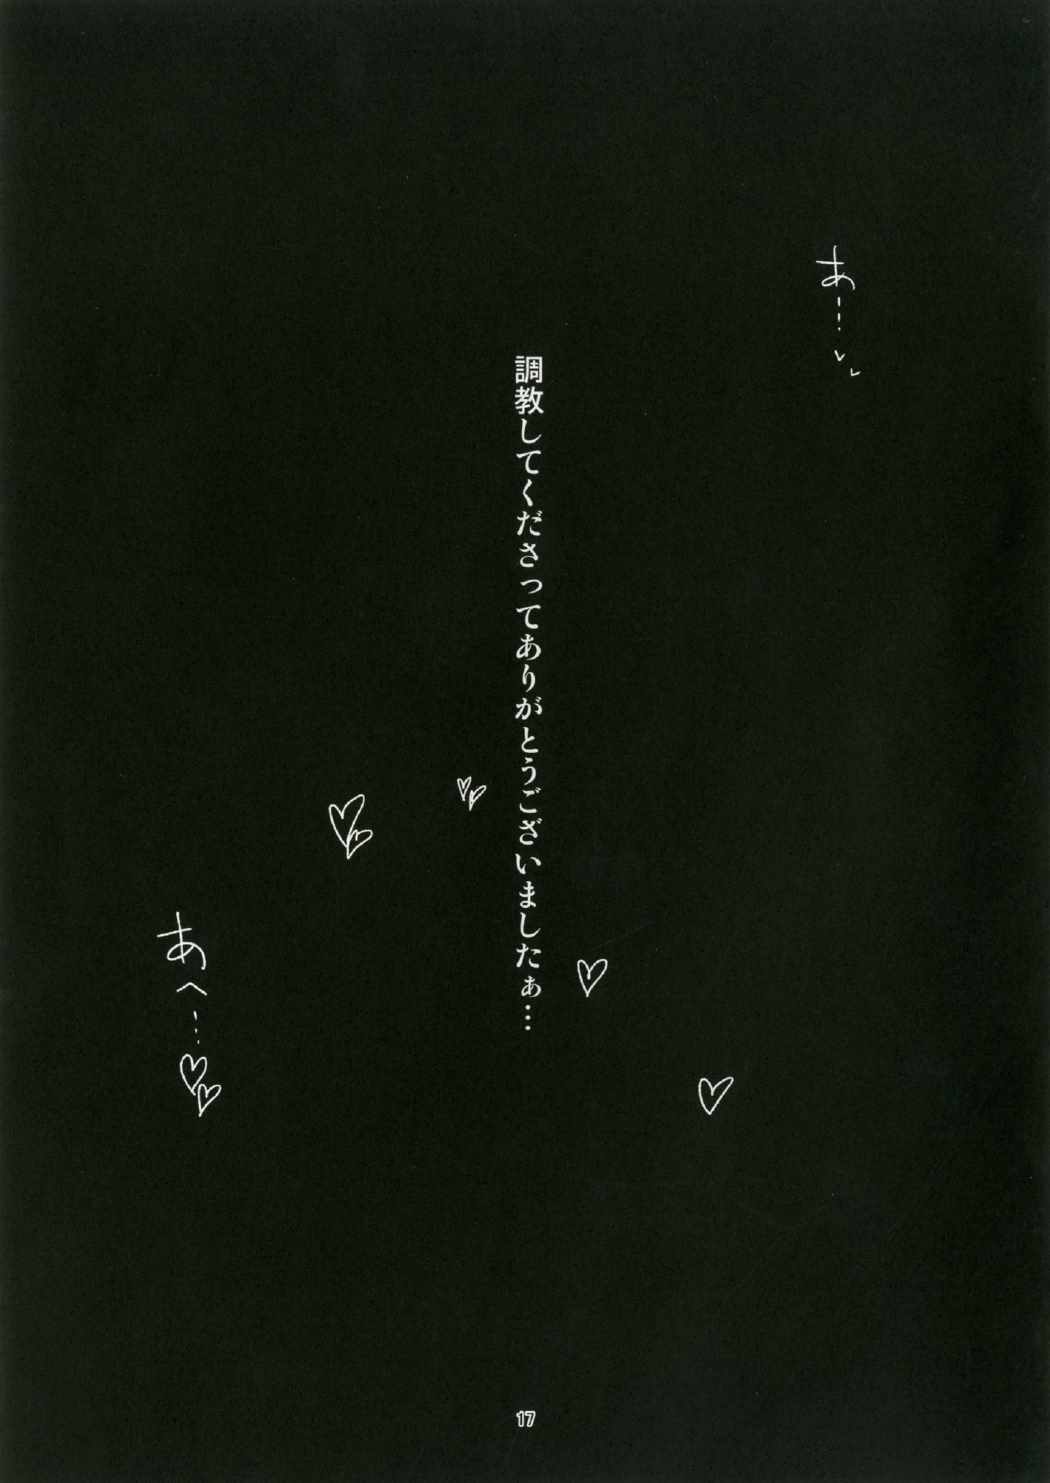 あ……
調教してくださってありがとうございましたぁ…
あへ…♡♡
17